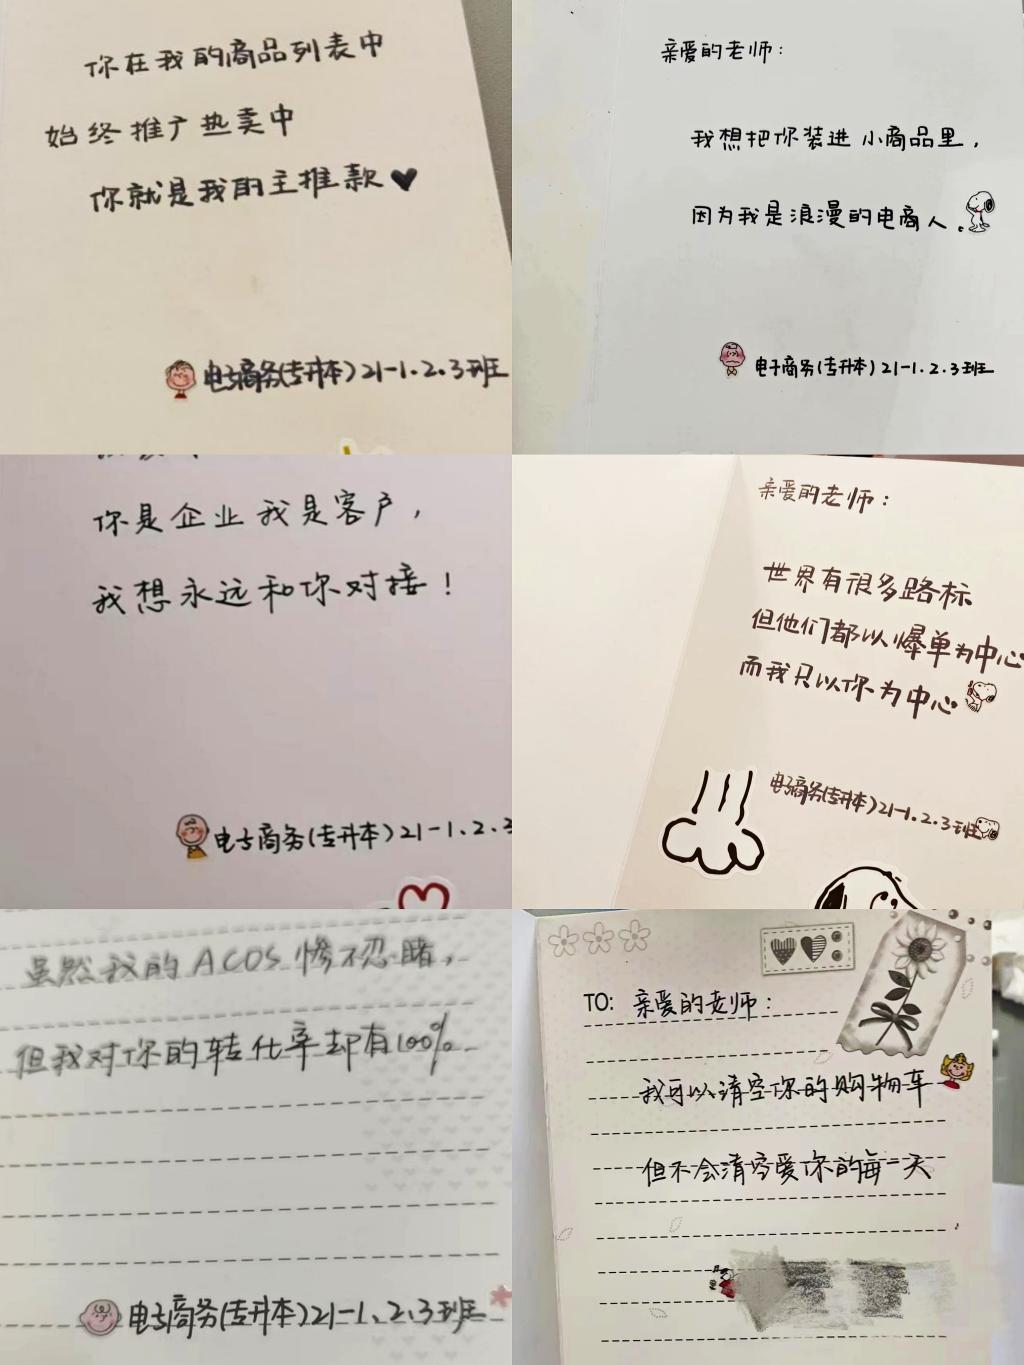 你在我的商品列表中
始终推广热卖中
你就是我的主推款
电子商务(专升本)21-1.2.3班
亲爱的老师：
我想把你装进小商品里，
因为我是浪漫的电商人.
电子商务(专升本)21-1.2.3班
你是企业我是客户，
我想永远和你对接！
电子商务(专升本)21-1.2.3
亲爱的老师：
世界有很多路标
但他们都以爆单为中心
而我只以你为中心
电子商务(专升本)21-1.2.3班
虽然我的ACOS惨不忍睹，
但我对你的转化率却有100%
电子商务(专升本)21-1.2.3班
TO: 亲爱的老师：
我可以清空你的购物车
但不会清空爱你的每一天